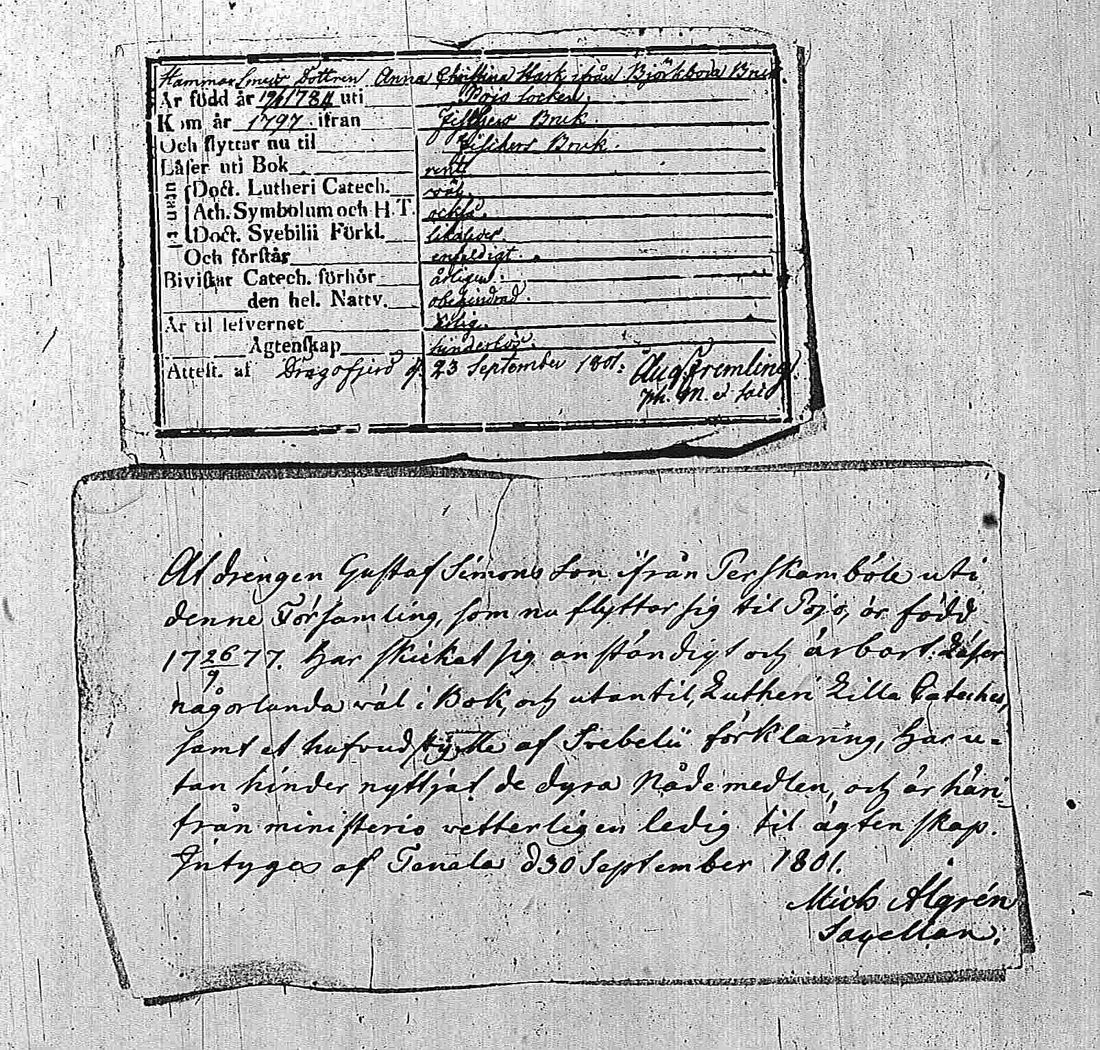 Hammar Smeds Dottren Anna Christina Stark ifrån Björkboda Bruk
Är född år 1784 uti Pojo Socken
Kom år 1797 ifran Fiskers Bruk.
Och flyttar nu til Fiskers Bruk.
Läser uti Bok rent
utan til
Doct. Lutheri Catech. väl.
Ath. Symbolum och H. T. också.
Doct. Svebilii Förkl. likaledes.
Och förstår enfaldigt.
Bivistar Catech. förhör årligen.
den hel. Nattv. obehindrad.
Är til lefvernet ärlig.
Ägtenskap hinderlös.
Attest. af Dragsfjerd d. 23 September 1801.
Aug. Fremling
Ph. M. et
At drengen Gustaf Simons Son ifrån Perskamböle uti
denne Församling, som nu flyttar sig til Pojo, är född
17 26/9 77. Har skickat sig anständigt och ärbart. Läser
någorlunda väl i Bok, och utantil, Lutheri Lilla Cateches,
samt et hufvudstycke af Svebelii förklaring, har u=
tan hinder nyttjat de dyra Nådemedlen, och är häri=
från ministerio vetterligen ledig til ägtenskap.
Intygas af Tenala d 30 September 1801.
Mich Ålgrén
Sacellan.